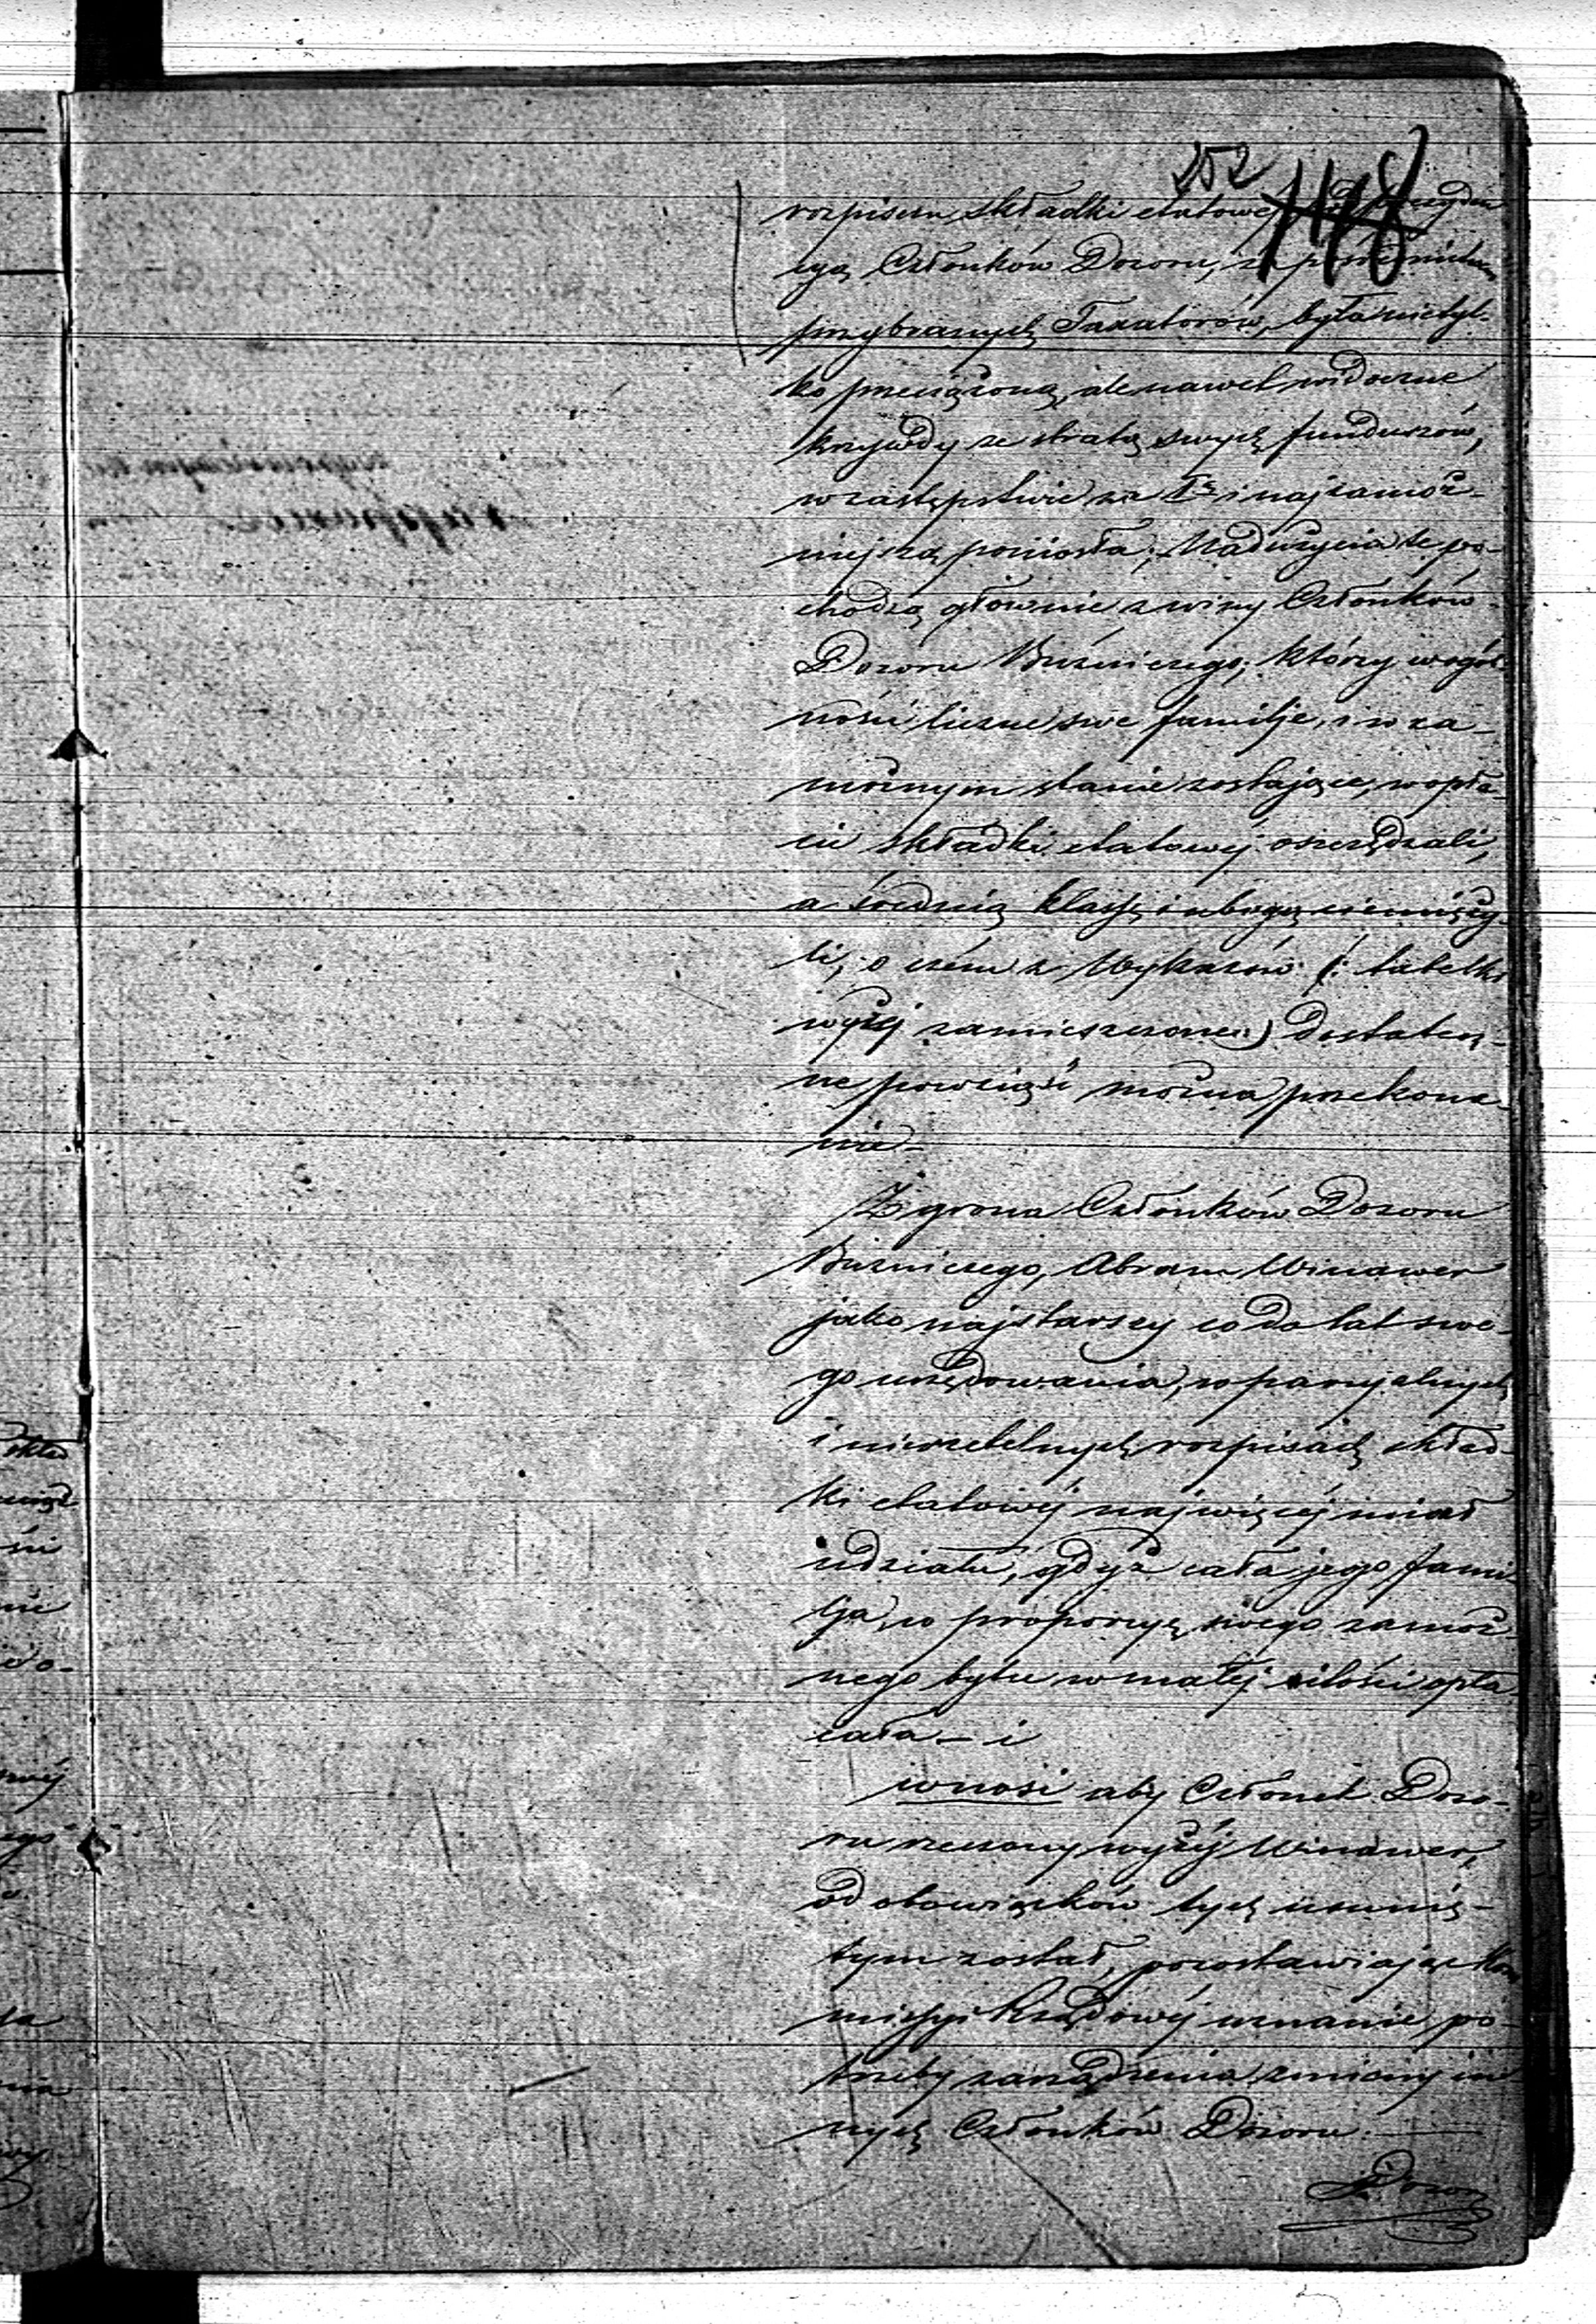 252
118
rozpisem składki etatowej
cyą Członków Dozoru, za pośrednictwem
przybranych Taxatorów, była nietyl-
ko przeciążoną, ale nawet widoczne
krzywdy ze stratą swych funduszów,
w zastępstwie za Ią i najzamoż-
niejszą poniosła; Nadużycia te po-
chodzą głównie z winy Członków
Dozoru Bużniczego, którzy wogól-
ności liczne swe familje, i w za-
możnym stanie zostające, w opła-
cie składki etatowéj oszczędzali,
a średnią klassę i ubogą ciemięży-
li, o czém z Wykazów (: tabelki
wyżej zamieszczone :) dostatecz-
ne powziąść można przekona-
nie -
Z grona Członków Dozoru
Bużniczego, Abram Winawer
jako najstarszy co do lat swe-
go urzędowania, w parcyalnych
i nierzetelnych rozpisach skład-
ki etatowéj najwięcéj miał
udziału, gdyż cała jego fami-
lja, w proporcyę swego zamoż-
nego bytu w małéj ilości opła-
cała - i
wnosi aby Członek Dozo-
ru rzeczony wyżéj Winawer,
od obowiązków tych usunię-
tym został, pozostawiając Kom
missyi Rządowéj uznanie po-
trzeby zarządzenia zmiany in-
nych Członków Dozoru.
Dozor